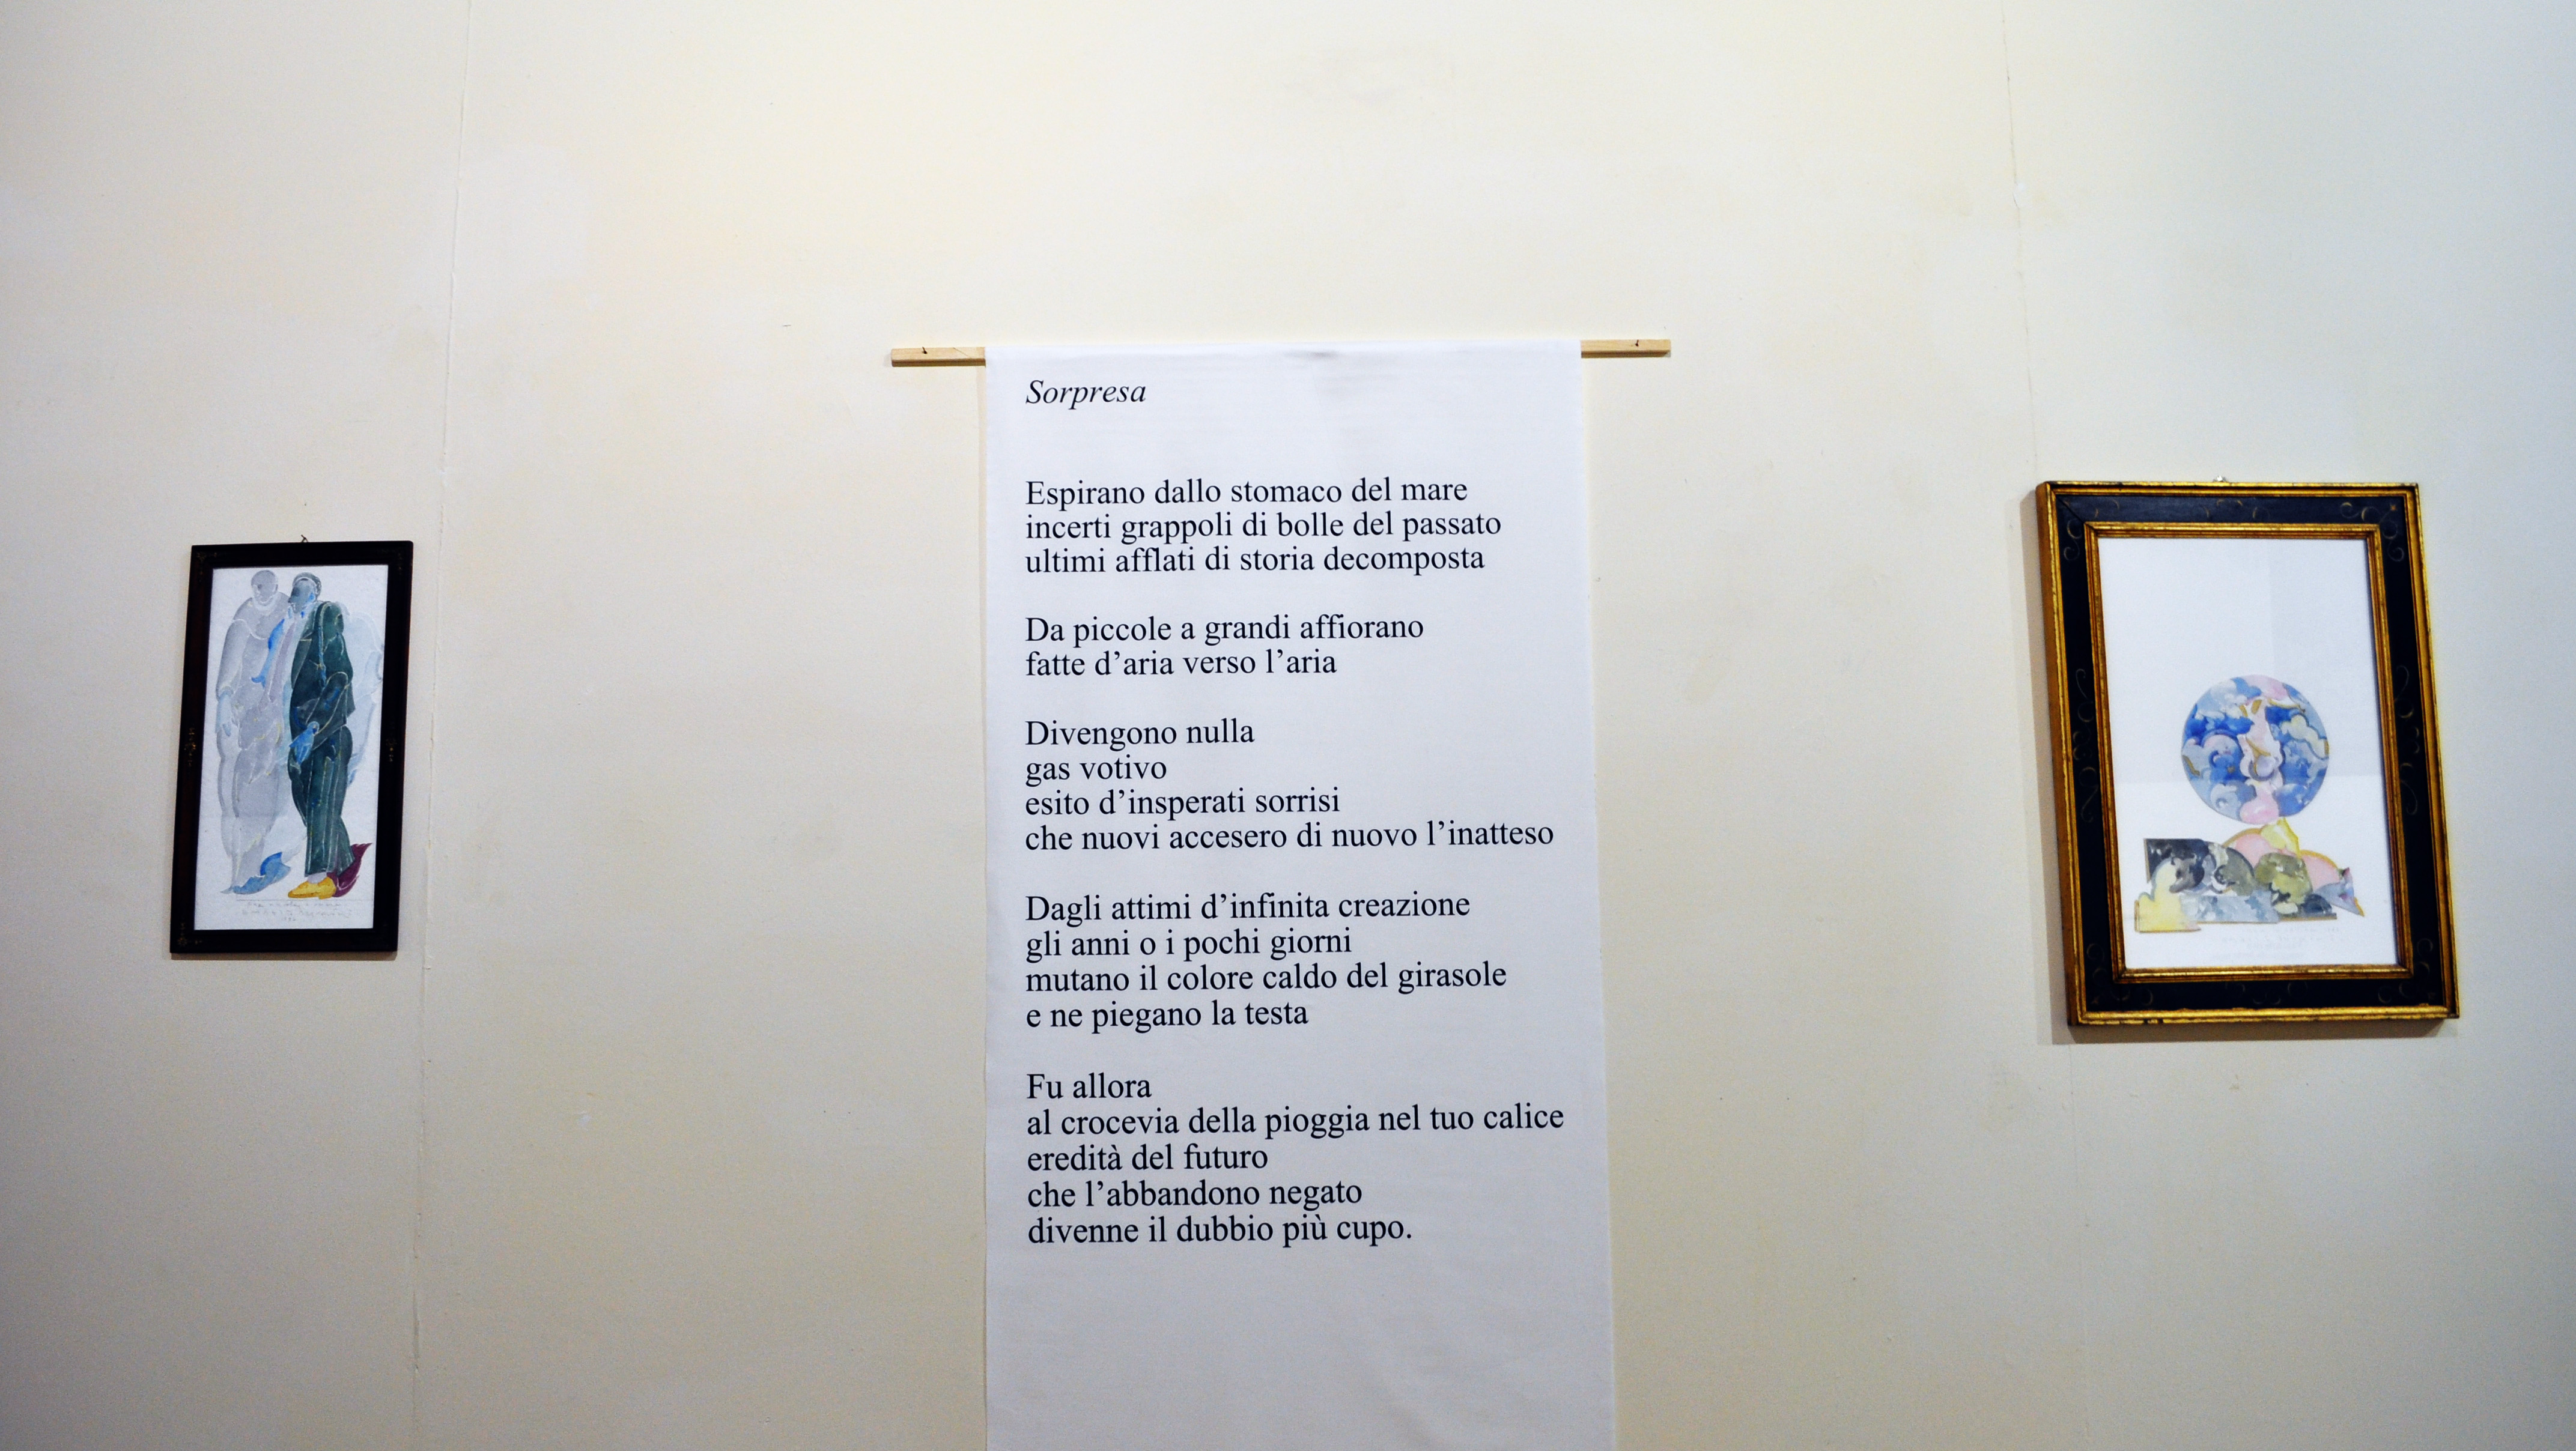 Sorpresa
Espirano dallo stomaco del mare
incerti grappoli di bolle del passato
ultimi afflati di storia decomposta
Da piccole a grandi affiorano
fatte d’aria verso l’aria
Divengono nulla
gas votivo
esito d’insperati sorrisi
che nuovi accesero di nuovo l’inatteso
Dagli attimi d’infinita creazione
gli anni o i pochi giorni
mutano il colore caldo del girasole
e ne piegano la testa
Fu allora
al crocevia della pioggia nel tuo calice
eredità del futuro
che l’abbandono negato
divenne il dubbio più cupo.